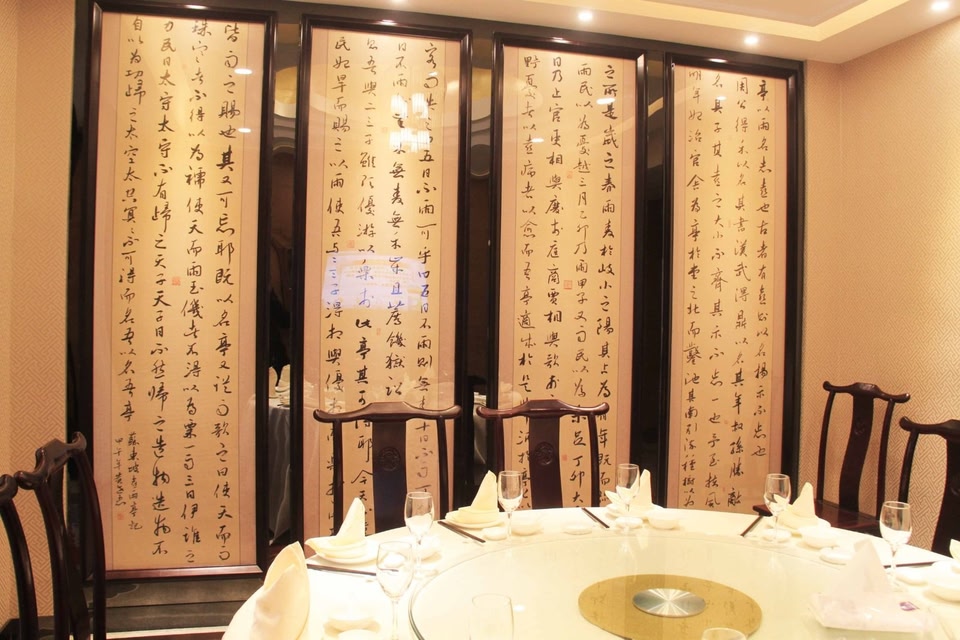 亭以雨名志喜也古者有喜則以名物示不忘也
周公得禾以名其書漢武得鼎以名其年叔孫勝敵
名其子其喜之大小不齊其示不忘一也予至扶風
明年始治官舍為亭於堂之北而鑿池其南引流種樹以為
之所是歲之春雨麥於岐山之陽其占為有年既而
雨民以為憂越三月乙卯乃雨甲子又雨民以為未足丁卯大
日乃止官吏相與慶於庭商賈相與歌於
野憂者以喜病者以愈而吾亭適成於是
客而曰五日不雨可乎曰五日不雨則無麥十日不雨可
曰不雨無禾無麥無禾歲且薦饑獄訟
吾與二三子雖欲優游以樂於此亭其可得耶今天
民始旱而賜之以雨使吾與二三子得相與優游
皆雨之賜也其又可忘耶既以名亭又從而歌之曰使天而雨
珠寒者不得以為襦使天而雨玉饑者不得以為粟一雨三日伊誰之
力民曰太守太守不有歸之天子天子曰不然歸之造物造物不
自以為功歸之太空太空冥冥不可得而名吾以名吾亭
蘇東坡喜雨亭記
甲午年